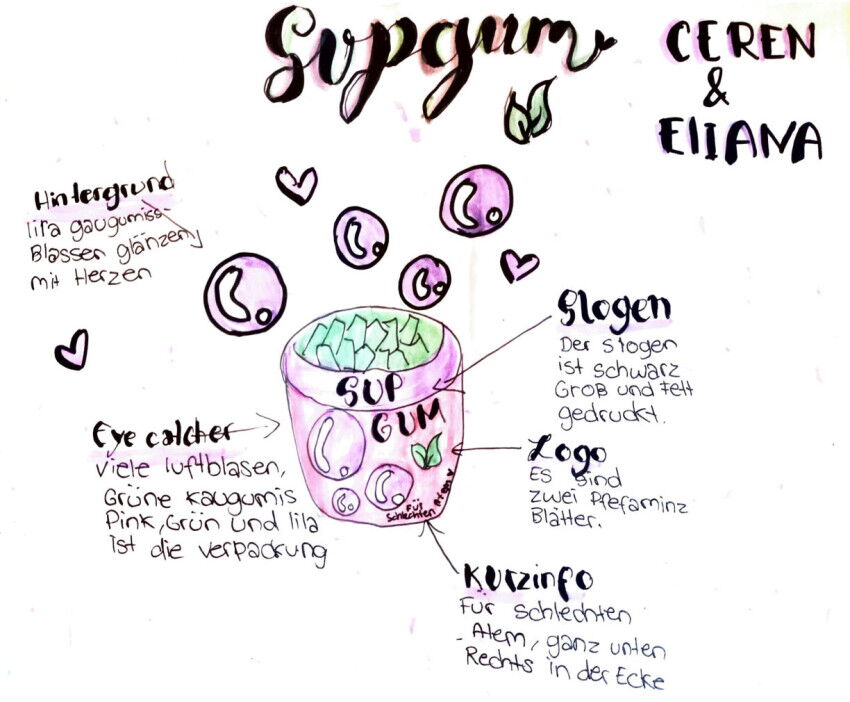 Supgum
CEREN
&
ElIANA
Hintergrund
lila gaugumiss-
Blassen glänzen
mit Herzen
Slogen
Der Slogen
ist schwarz
Groß und Fett
gedruckt.
SUP
GUM
Eye catcher
viele luftblasen,
Grüne Kaugumis
Pink, Grün und lila
ist die verpackung
Logo
ES sind
zwei Prefaminz
Blätter.
FÜr
Schlechten Atem
Kurzinfo
Für Schlechten
- Atem, ganz unten
Rechts in der Ecke